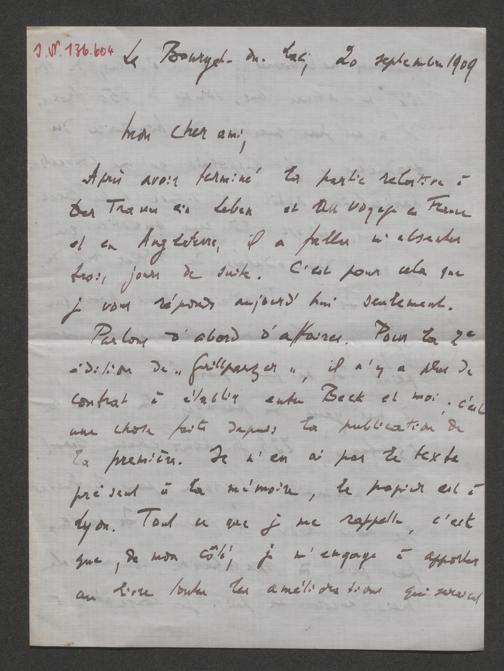 J.N. 136.604
Le Bourget-du-Lac, 20 septembre 1909
Mon cher ami,
Après avoir terminé la partie relative à
Der Traum ein Leben et au voyage en France
et en Angleterre, il a fallu m'absenter
trois jours de suite. C'est pour cela que
je vous réponds aujourd'hui seulement.
Parlons d'abord d'affaires. Pour la 2e
édition de „Grillparzer", il n'y a plus de
contrat à établir entre Beck et moi; c'est
une chose faite depuis la publication de
la première. Je n'en ai pas le texte
présent à la mémoire, le papier est à
Lyon. Tout ce que je me rappelle, c'est
que, de mon côté, je m'engage à apporter
au livre toutes les améliorations qui seraient